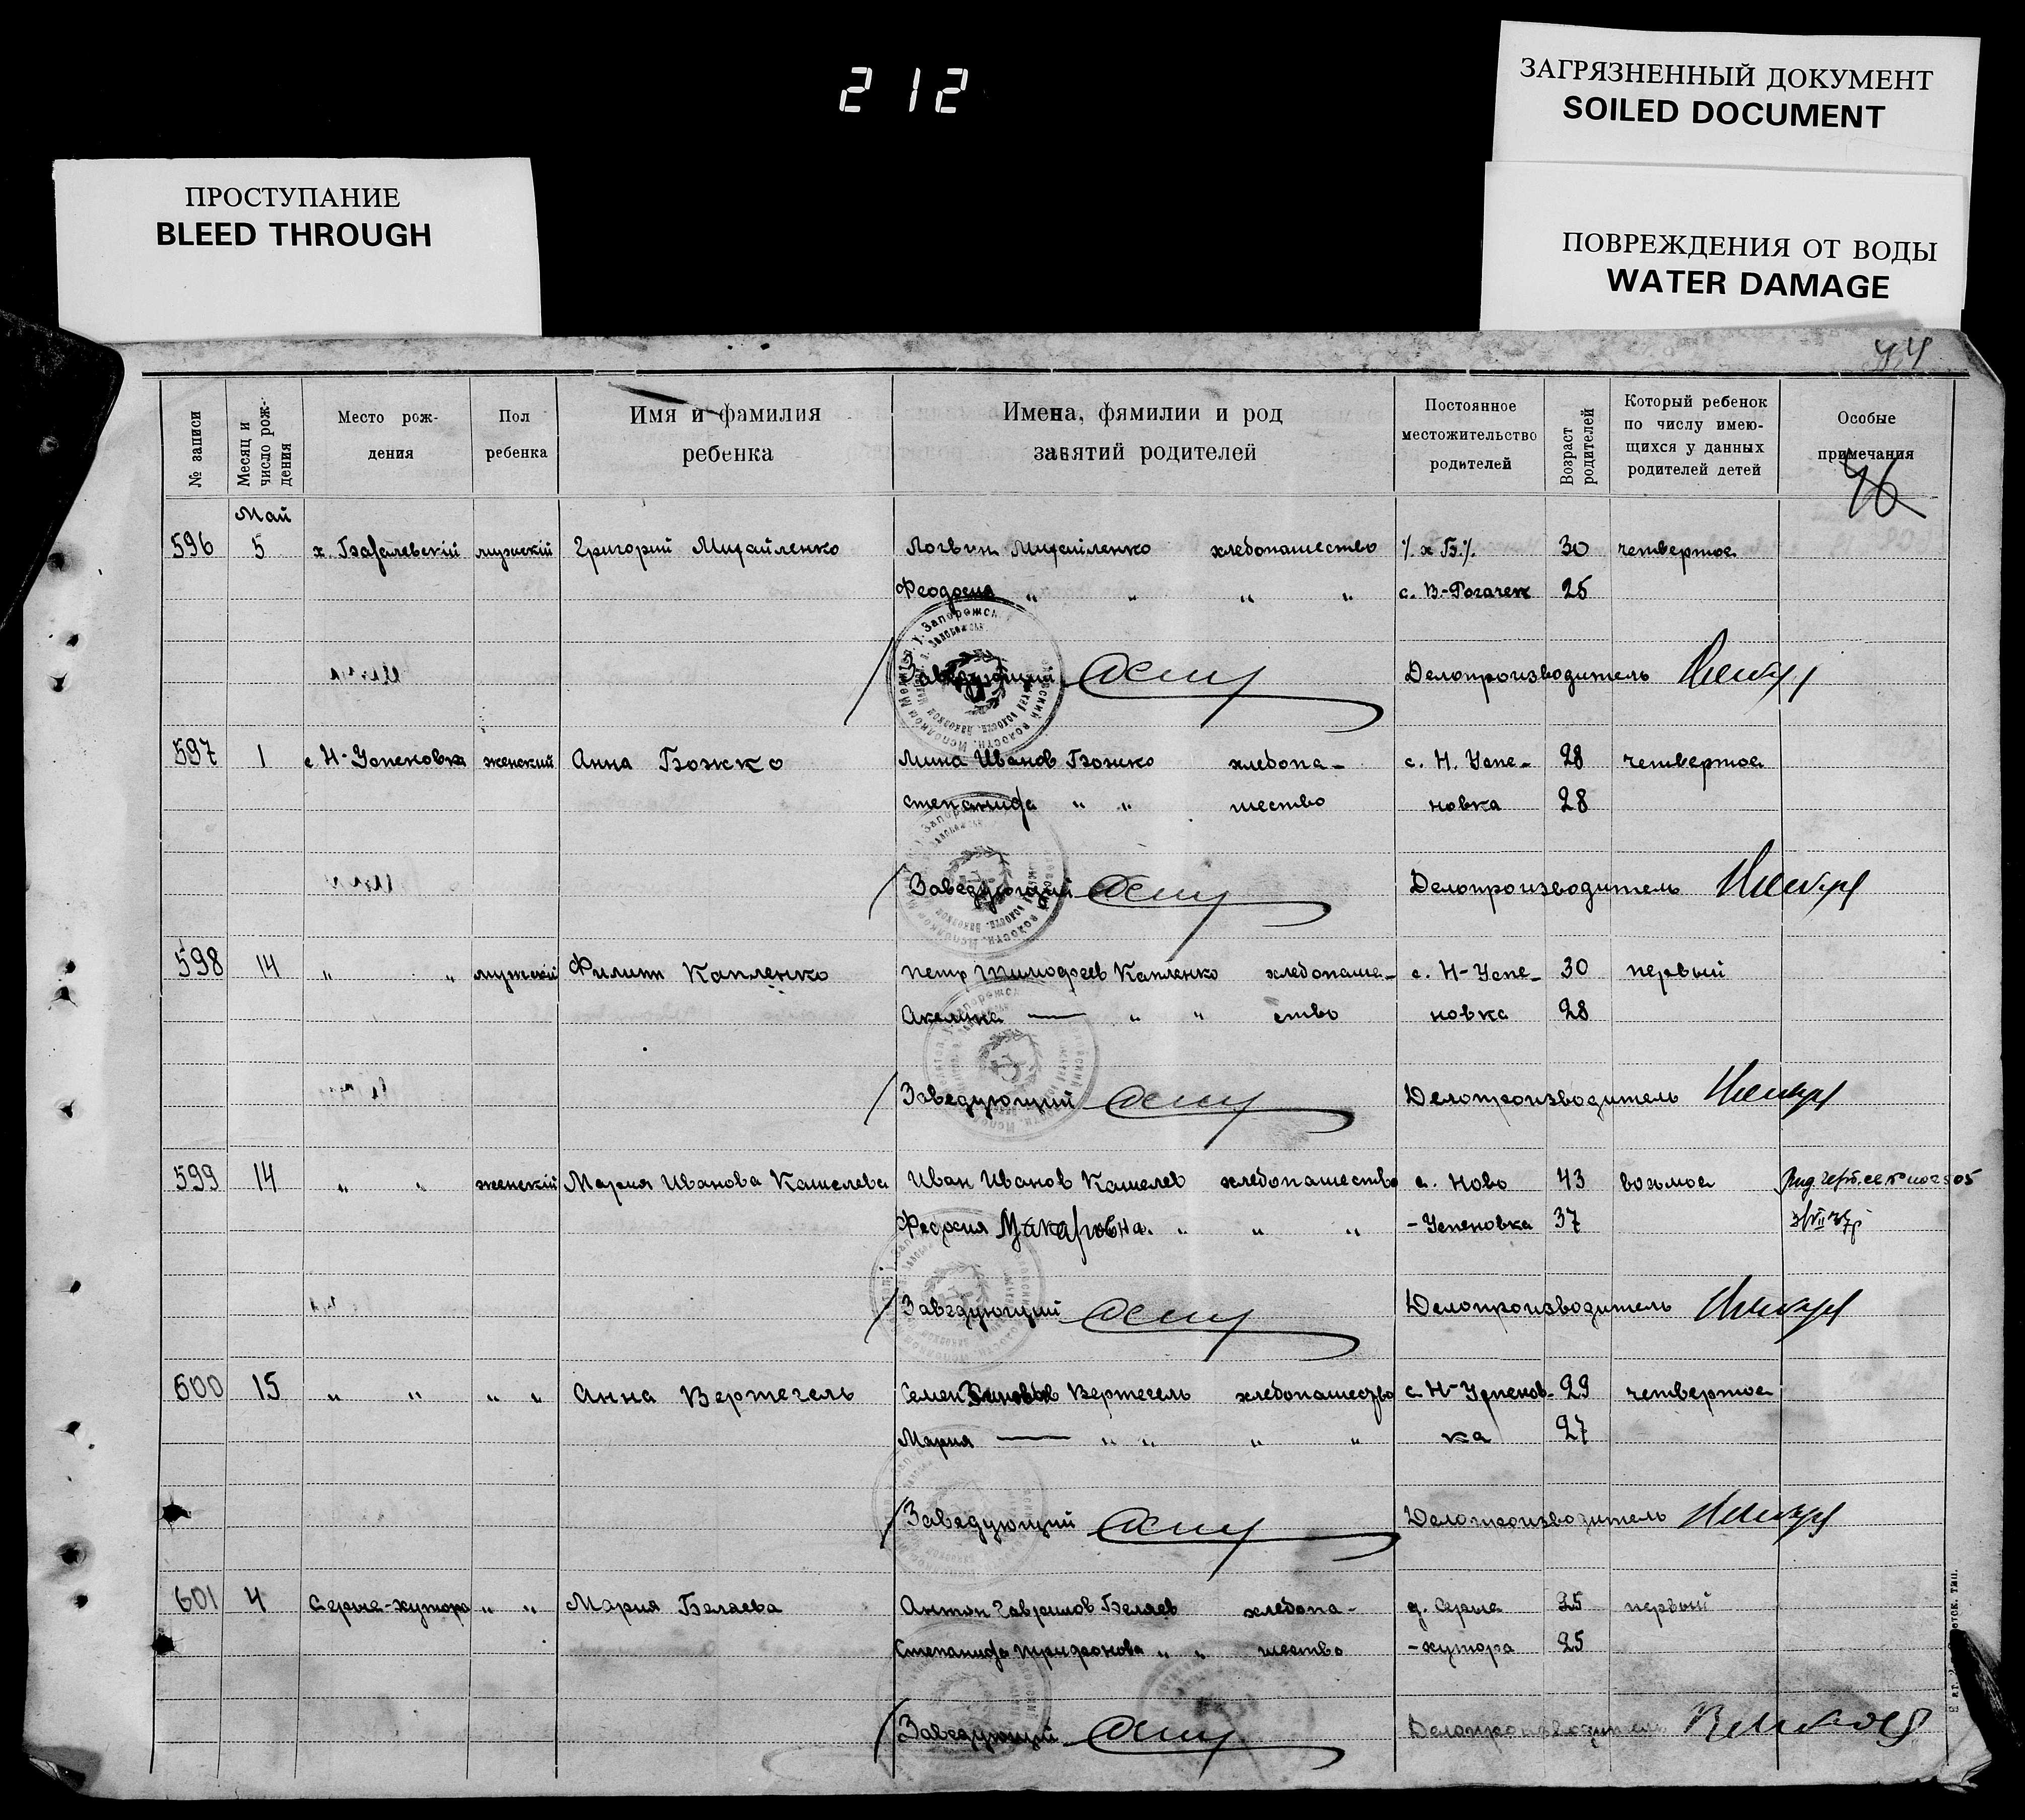 212
ЗАГРЯЗНЕННЫЙ ДОКУМЕНТ
SOILED DOCUMENT
ПРОСТУПАНИЕ
BLEED THROUGH
ПОВРЕЖДЕНИЯ ОТ ВОДЫ
WATER DAMAGE
44
№ записи
Месяц и
число рож-
дения
Место рож-
дения
Пол
ребенка
Имя и фамилия
ребенка
Имена, фямилии и род
занятий родителей
Постоянное
местожительство
родителей
Возраст
родителей
Который ребенок
по числу имею-
щихся у данных
родителей детей
Особые
примечания
46
Май
596 5 х. мужский Григорий Михайленко Логвин Михайленко хлебопашество х Б. 30 четвертое
Феодосия " " " " с. В-Рогачек 25
Заведующий Делопроизводитель
597 1 с Н-Успеновка женский Анна Божко Мина Иванов Божко хлебопа- с. Н. Успе- 28 четвертое
Степанида " " шество новка 28
Заведующий Делопроизводитель
598 14 " " мужский Филипп Капленко Петр Тимофеев Капленко хлебопаше- с. Н-Успе- 30 первый
Акелина — " " ство новка 28
Заведующий Делопроизводитель
599 14 " " женский Мария Иванова Кашелева Иван Иванов Кашелев хлебопашество с. Ново 43 восьмое
Макаровна " " " -Успеновка 37
Заведующий Делопроизводитель
600 15 " " " " Анна Вертегель Семен Вертегель хлебопашество с Н-Успенов- 29 четвертое
Мария — " " " " ка 27
Заведующий Делопроизводитель
601 4 Серые-хутора " " Мария Беляева Антон Гаврилов Беляев хлебопа- д. Серые 25 первый
Степанида Трифонова " " шество -хутора 25
Заведующий Делопроизводитель